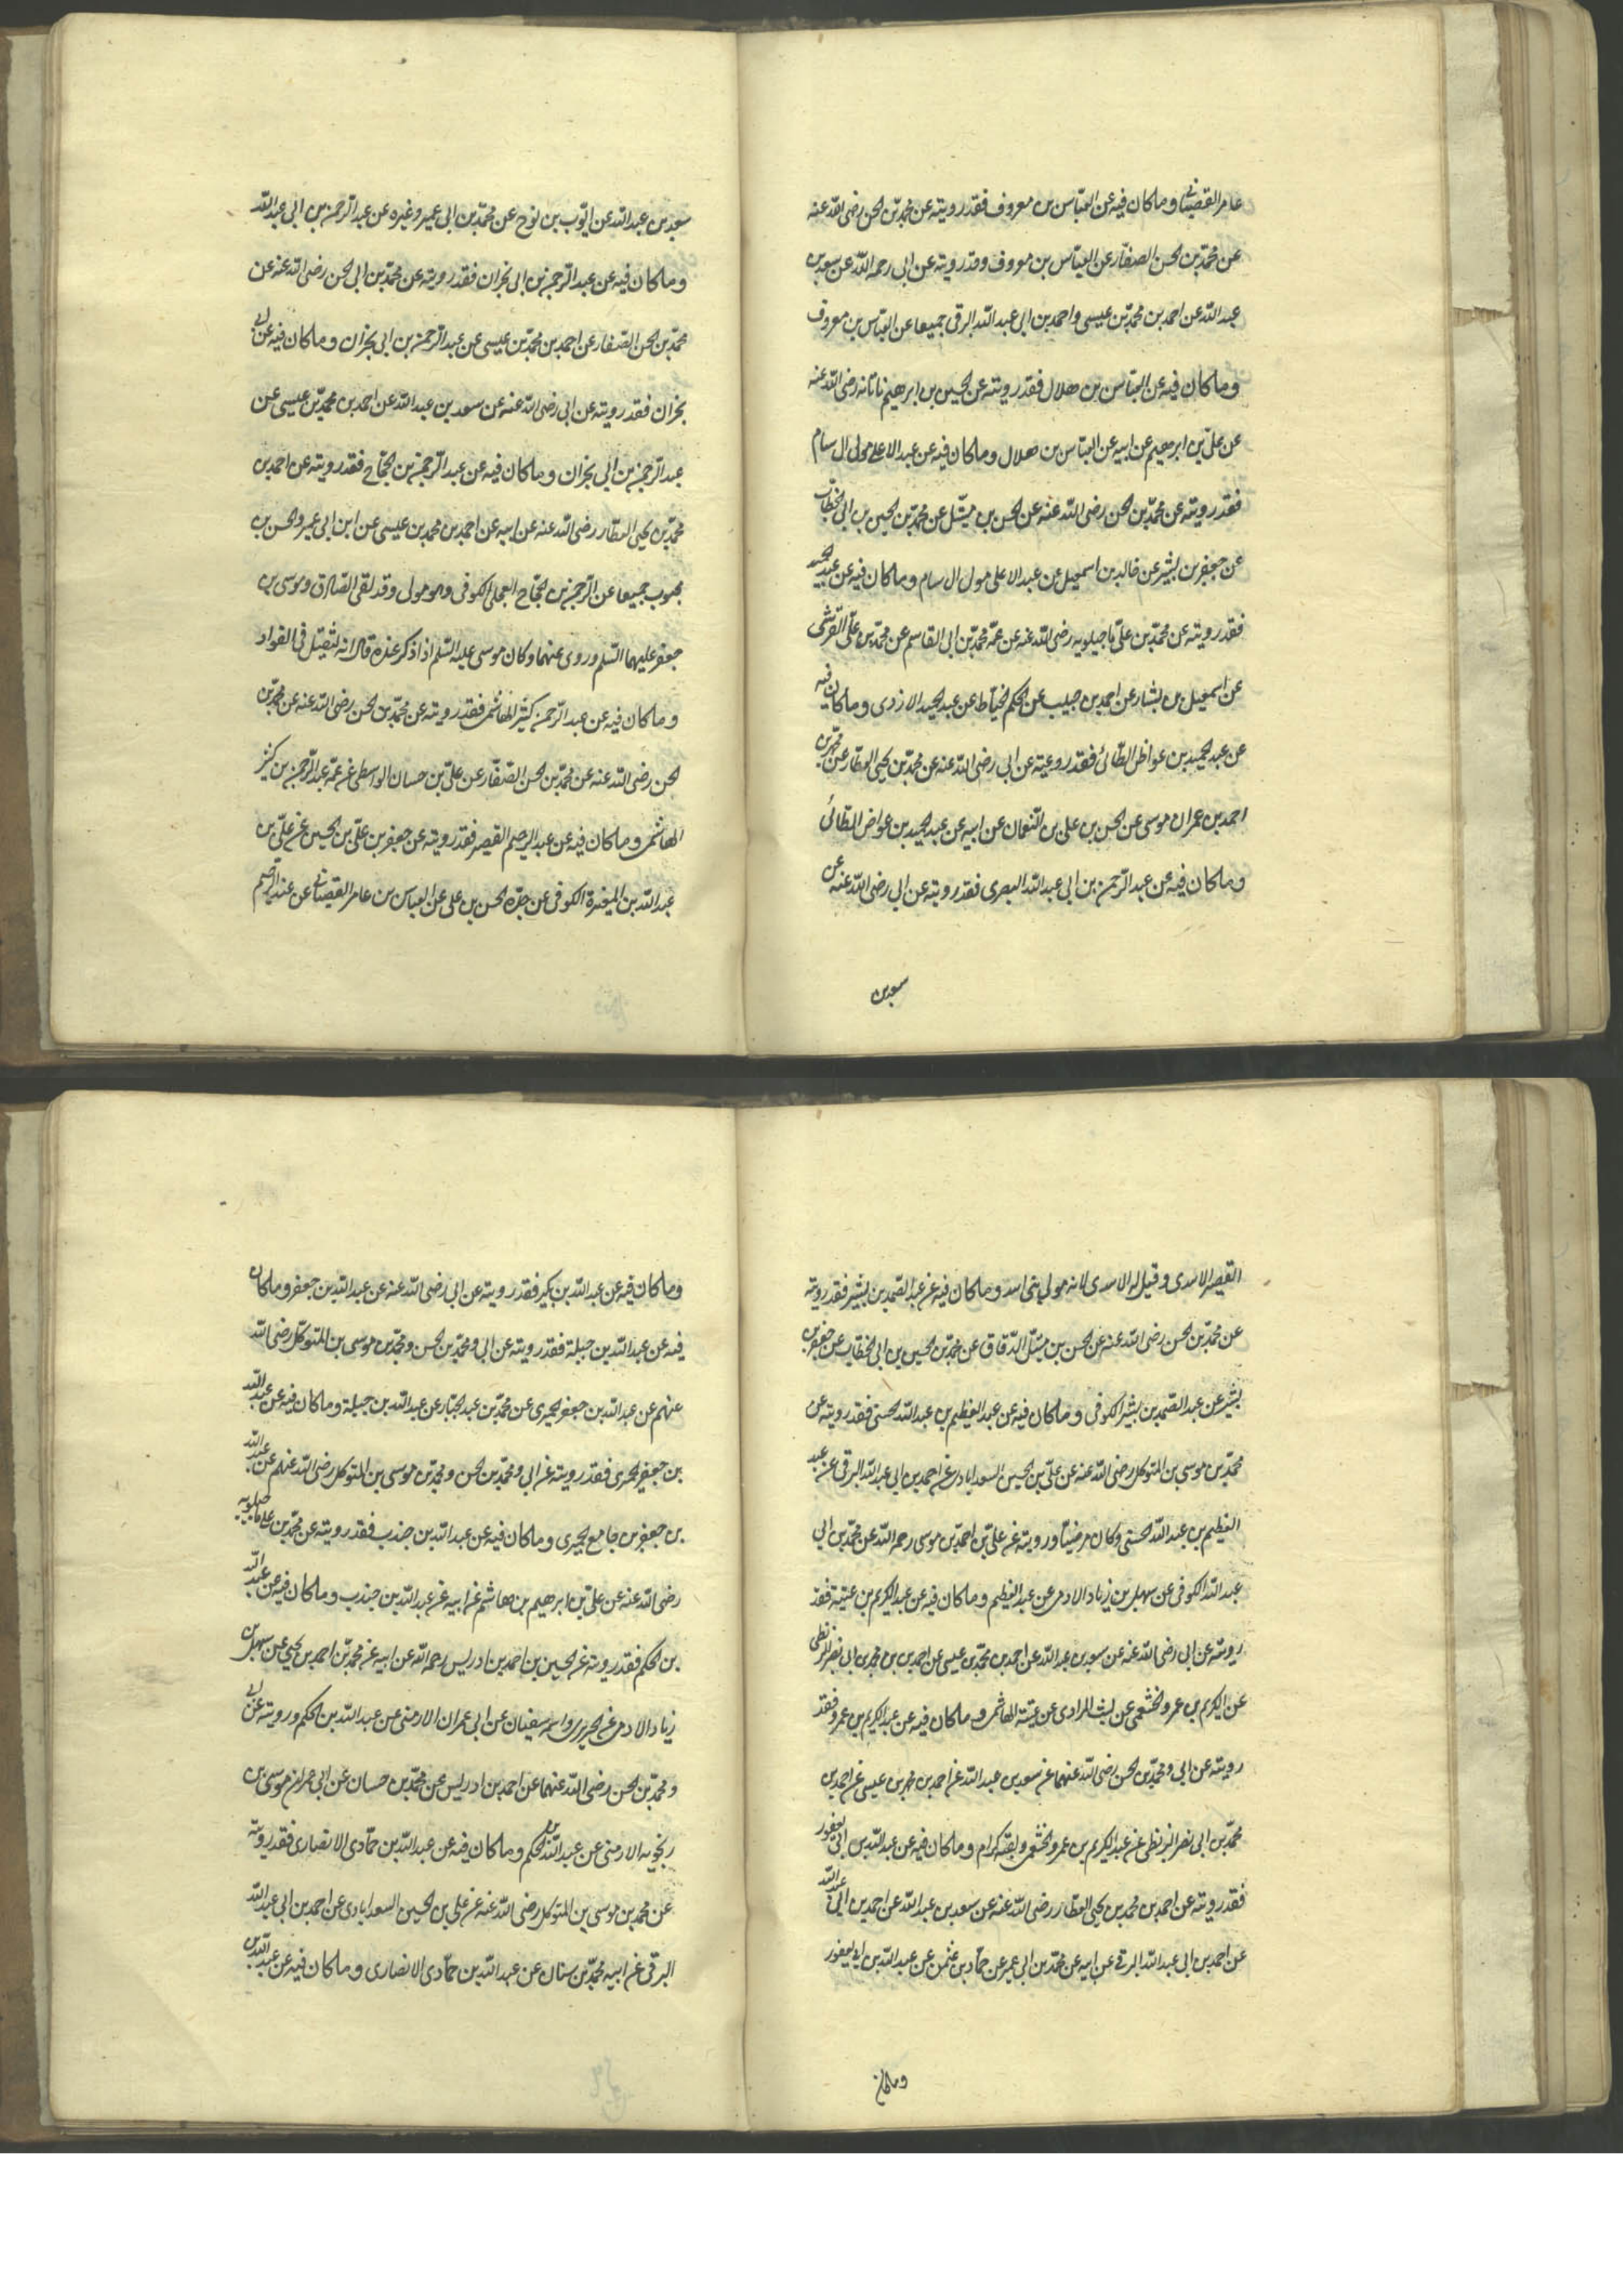 عامر القصبانی وماكان فيه عن العباس بن معروف فقد رويته عن محمد بن الحسن رضى الله عنه
عن محمد بن الحسن الصفار عن العباس بن معروف وقد رويته عن ابى رحمه الله عن سعد بن
عبد الله عن احمد بن محمد بن عيسى واحمد بن ابى عبد الله البرقى جميعا عن العباس بن معروف
وماكان فيه عن العباس بن هلال فقد رويته عن الحسين بن ابرهيم ناتانه رضى الله عنه
عن على بن ابرهيم عن ابيه عن العباس بن هلال وماكان فيه عن عبد الاعلى مولى ال سام
فقد رويته عن محمد بن الحسن رضى الله عنه عن الحسن بن متيل عن محمد بن الحسين بن ابى الخطاب
عن جعفر بن بشير عن خالد بن اسمعيل عن عبد الاعلى مولى ال سام وماكان فيه عن عبد الحميد
فقد رويته عن محمد بن على ماجيلويه رضى الله عنه عن عمه محمد بن ابى القاسم عن محمد بن على القرشى
عن اسمعيل بن بشار عن احمد بن حبيب عن الحكم الخياط عن عبد الحميد الازدى وماكان فيه
عن عبد الحميد بن عواظ الطائى فقد رويته عن ابى رضى الله عنه عن محمد بن يحيى العطار عن محمد بن
احمد بن عمران موسى عن الحسن بن على بن النعمان عن ابيه عن عبد الحميد بن عواض الطائى
وماكان فيه عن عبد الرحمن بن ابى عبد الله البصرى فقد رويته عن ابى رضى الله عنه عن
سعد بن
سعد بن عبد الله عن ايوب بن نوح عن محمد بن ابى عمير وغيره عن عبد الرحمن بن ابى عبد الله
وماكان فيه عن عبد الرحمن بن ابى نجران فقد رويته عن محمد بن ابى الحسن رضى الله عنه عن
محمد بن الحسن الصفار عن احمد بن محمد بن عيسى عن عبد الرحمن بن ابى نجران وماكان فيه عن ابى
نجران فقد رويته عن ابى رضى الله عنه عن سعد بن عبد الله عن احمد بن محمد بن عيسى عن
عبد الرحمن بن ابى نجران وماكان فيه عن عبد الرحمن بن الحجاج فقد رويته عن احمد بن
محمد بن يحيى العطار رضى الله عنه عن ابيه عن احمد بن محمد بن عيسى عن ابن ابى عمير والحسن بن
محبوب جميعا عن الرحمن بن الحجاج البجلى الكوفى وهو مولى وقد لقى الصادق وموسى بن
جعفر عليهما السلم وروى عنهما وكان موسى عليه السلم اذا ذكر عنده قال انه لثقيل فى الفواد
وماكان فيه عن عبد الرحمن كثير الهاشمى فقد رويته عن محمد بن الحسن رضى الله عنه عن محمد بن
الحسن رضى الله عنه عن محمد بن الحسن الصفار عن على بن حسان الواسطى عن عمه عبد الرحمن بن كثير
الهاشمى وماكان فيه عن عبد الرحيم القصير فقد رويته عن جعفر بن على بن الحسين عن على بن
عبد الله بن المغيرة الكوفى عن جده الحسن بن على عن العباس بن عامر القصبانى عن عبد الرحيم
القصير الاسدى وقيل له الاسدى لانه مولى بنى اسد وماكان فيه عن عبد الصمد بن بشير فقد رويته
عن محمد بن الحسن رضى الله عنه عن الحسن بن متيل الدقاق عن محمد بن الحسين بن ابى الخطاب عن جعفر بن
بشير عن عبد الصمد بن بشير الكوفى وماكان فيه عن عبد العظيم بن عبد الله الحسنى فقد رويته عن
محمد بن موسى بن المتوكل رضى الله عنه عن على بن الحسين السعدابادى عن احمد بن ابى عبد الله البرقى عن عبد
العظيم بن عبد الله الحسنى وكان مرضيا ورويته عن على بن احمد بن موسى رحمه الله عن محمد بن ابى
عبد الله الكوفى عن سهل بن زياد الادمى عن عبد العظيم وماكان فيه عن عبد الكريم بن عتبة فقد
رويته عن ابى رضى الله عنه عن سعد بن عبد الله عن احمد بن محمد بن عيسى عن احمد بن محمد بن ابى نصر البزنطى
عن الكريم بن عمرو الخثعمى عن ليث المرادى عن عتبة الهاشمى وماكان فيه عن عبد الكريم بن عمرو فقد
رويته عن ابى ومحمد بن الحسن رضى الله عنهما عن سعد بن عبد الله عن احمد بن محمد بن عيسى عن احمد بن
محمد بن ابى نصر البزنطى عن عبد الكريم بن عمرو الخثعمى ولقبه كرام وماكان فيه عن عبد الله بن ابى يعفور
فقد رويته عن احمد بن محمد بن يحيى العطار رضى الله عنه عن سعد بن عبد الله عن احمد بن ابى عبد الله
عن احمد بن ابى عبد الله البرقى عن ابيه عن محمد بن ابى عمير عن حماد بن عثمن عن عبد الله بن ابى يعفور
وماكان
وماكان فيه عن عبد الله بن بكير فقد رويته عن ابى رضى الله عنه عن عبد الله بن جعفر وماكان
فيه عن عبد الله بن جبلة فقد رويته عن ابى ومحمد بن الحسن ومحمد بن موسى بن المتوكل رضى الله
عنهم عن عبد الله بن جعفر الحميرى عن محمد بن عبد الجبار عن عبد الله بن جبلة وماكان فيه عن عبد الله
بن جعفر الحميرى فقد رويته عن ابى ومحمد بن الحسن ومحمد بن موسى بن المتوكل رضى الله عنهم عن عبد الله
بن جعفر بن جامع الحميرى وماكان فيه عن عبد الله بن جندب فقد رويته عن محمد بن على ماجيلويه
رضى الله عنه عن على بن ابرهيم بن هاشم عن ابيه عن عبد الله بن جندب وماكان فيه عن عبد الله
بن الحكم فقد رويته عن الحسين بن احمد بن ادريس رحمه الله عن ابيه عن محمد بن احمد بن يحيى عن سهل بن
زياد الادمى عن الجريرى واسمه سفيان عن ابى عمران الارمنى عن عبد الله بن الحكم ورويته عن ابى
ومحمد بن الحسن رضى الله عنهما عن احمد بن ادريس عن محمد بن حسان عن ابى عمران موسى بن
رنجويه الارمنى عن عبد الله بن الحكم وماكان فيه عن عبد الله بن حمادى الانصارى فقد رويته
عن محمد بن موسى بن المتوكل رضى الله عنه عن على بن الحسين السعدابادى عن احمد بن ابى عبد الله
البرقى عن ابيه محمد بن سنان عن عبد الله بن حمادى الانصارى وماكان فيه عن عبد الله بن